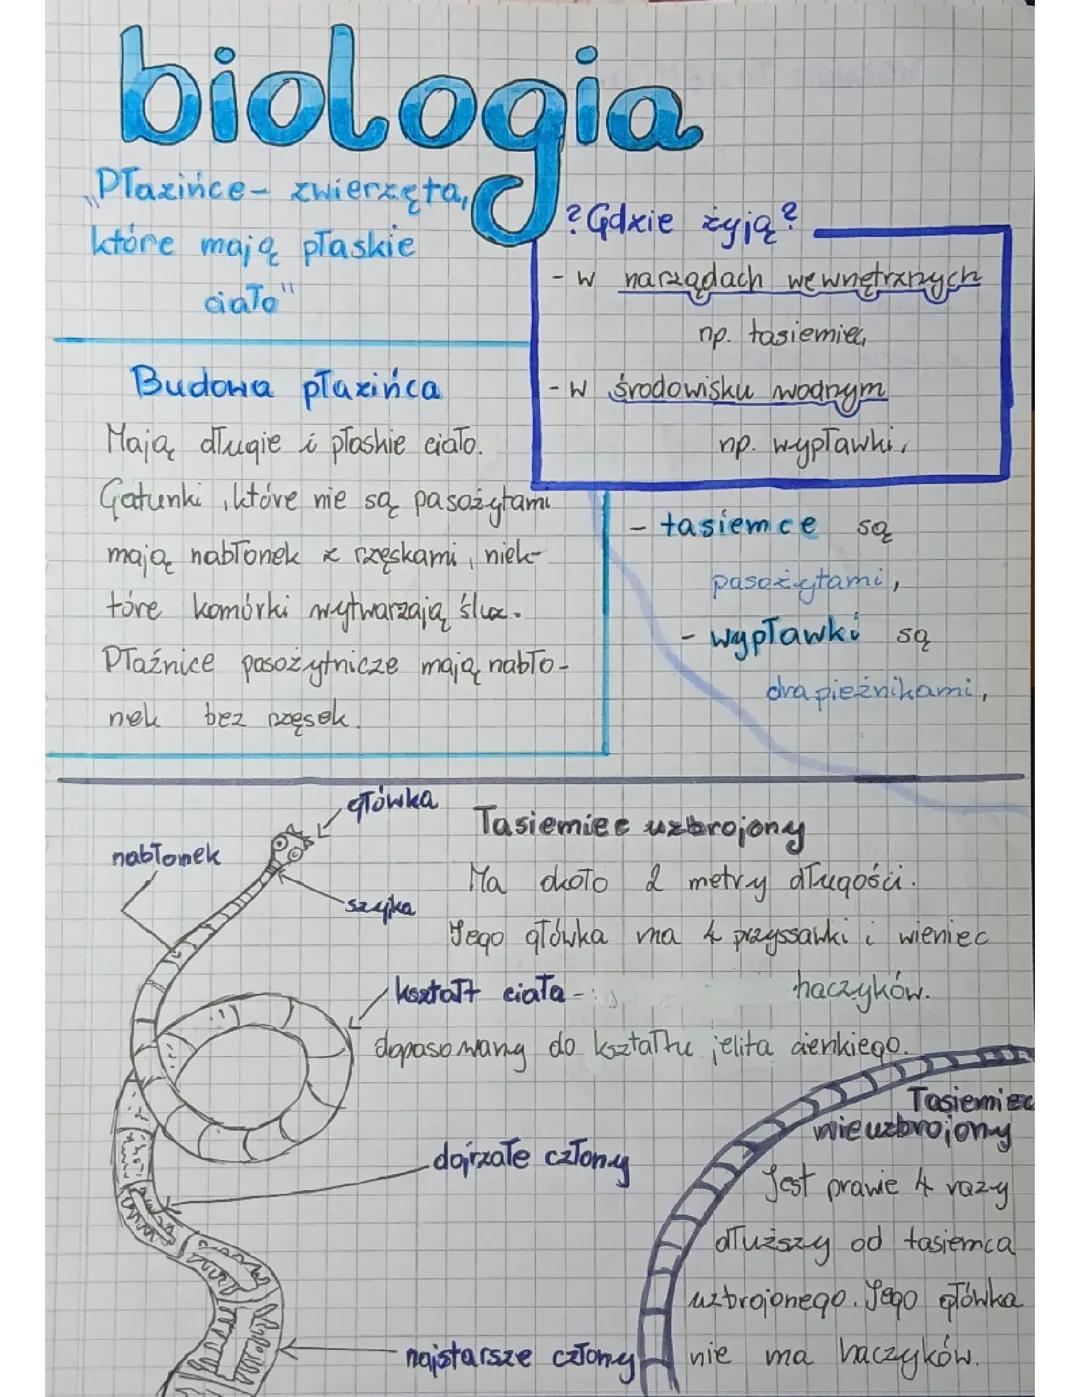 biologia
„Płazińce- zwierzęta,
które mają płaskie
ciało"
? Gdzie żyją?
- w narządach wewnętrznych
np. tasiemiec,
- w środowisku wodnym
np. wypławki,
Budowa płazińca
Mają długie i płaskie ciało.
Gatunki, które nie są pasożytami
mają nabłonek z rzęskami, niek-
tóre komórki wytwarzają śluz.
Płaźnice pasożytnicze mają nabło-
nek bez rzęsek.
- tasiemce są
pasożytami,
- wypławki są
drapieżnikami,
główka
nabłonek
szyjka
Tasiemiec uzbrojony
Ma około 2 metry długości.
Jego główka ma 4 przyssawki i wieniec
haczyków.
kształt ciała -
dopasowany do kształtu jelita cienkiego.
dojrzałe człony
najstarsze człony
Tasiemiec
nieuzbrojony
Jest prawie 4 razy
dłuższy od tasiemca
uzbrojonego. Jego główka
nie ma haczyków.